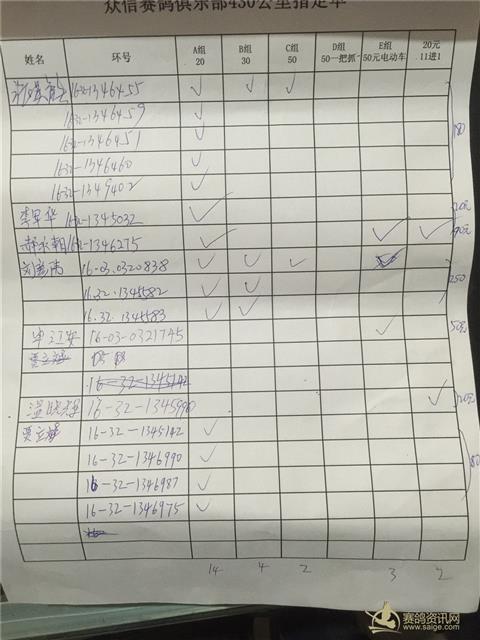 众信赛鸽俱乐部430公里指定单
姓名 环号 A组 20 B组 30 C组 50 D组 50一把抓 E组 50元电动车 20元 11进1
16-32-1346455 ✓ ✓ ✓
16-32-1346459 ✓
16-32-1346451 ✓
16-32-1346460 ✓ 180
16-32-1349402 ✓
李早华 16-32-1345032 ✓ 20元
郝永朝 16-32-1346275 ✓ ✓ ✓ 90元
刘彦雨 16-03-0320838 ✓ ✓ ✓
16.32.1345582 ✓ ✓ 250
16.32.1345583 ✓ ✓
16-03-0321745 ✓ 50元
贾立斌
16-32-1345142
温晓辉 16-32-1345990 ✓ 20元
贾立斌 16-32-1345142 ✓
16-32-1346990 ✓ 80
16-32-1346987 ✓
16-32-1346975 ✓
14 4 2 3 2
赛鸽资讯网
www.saige.com